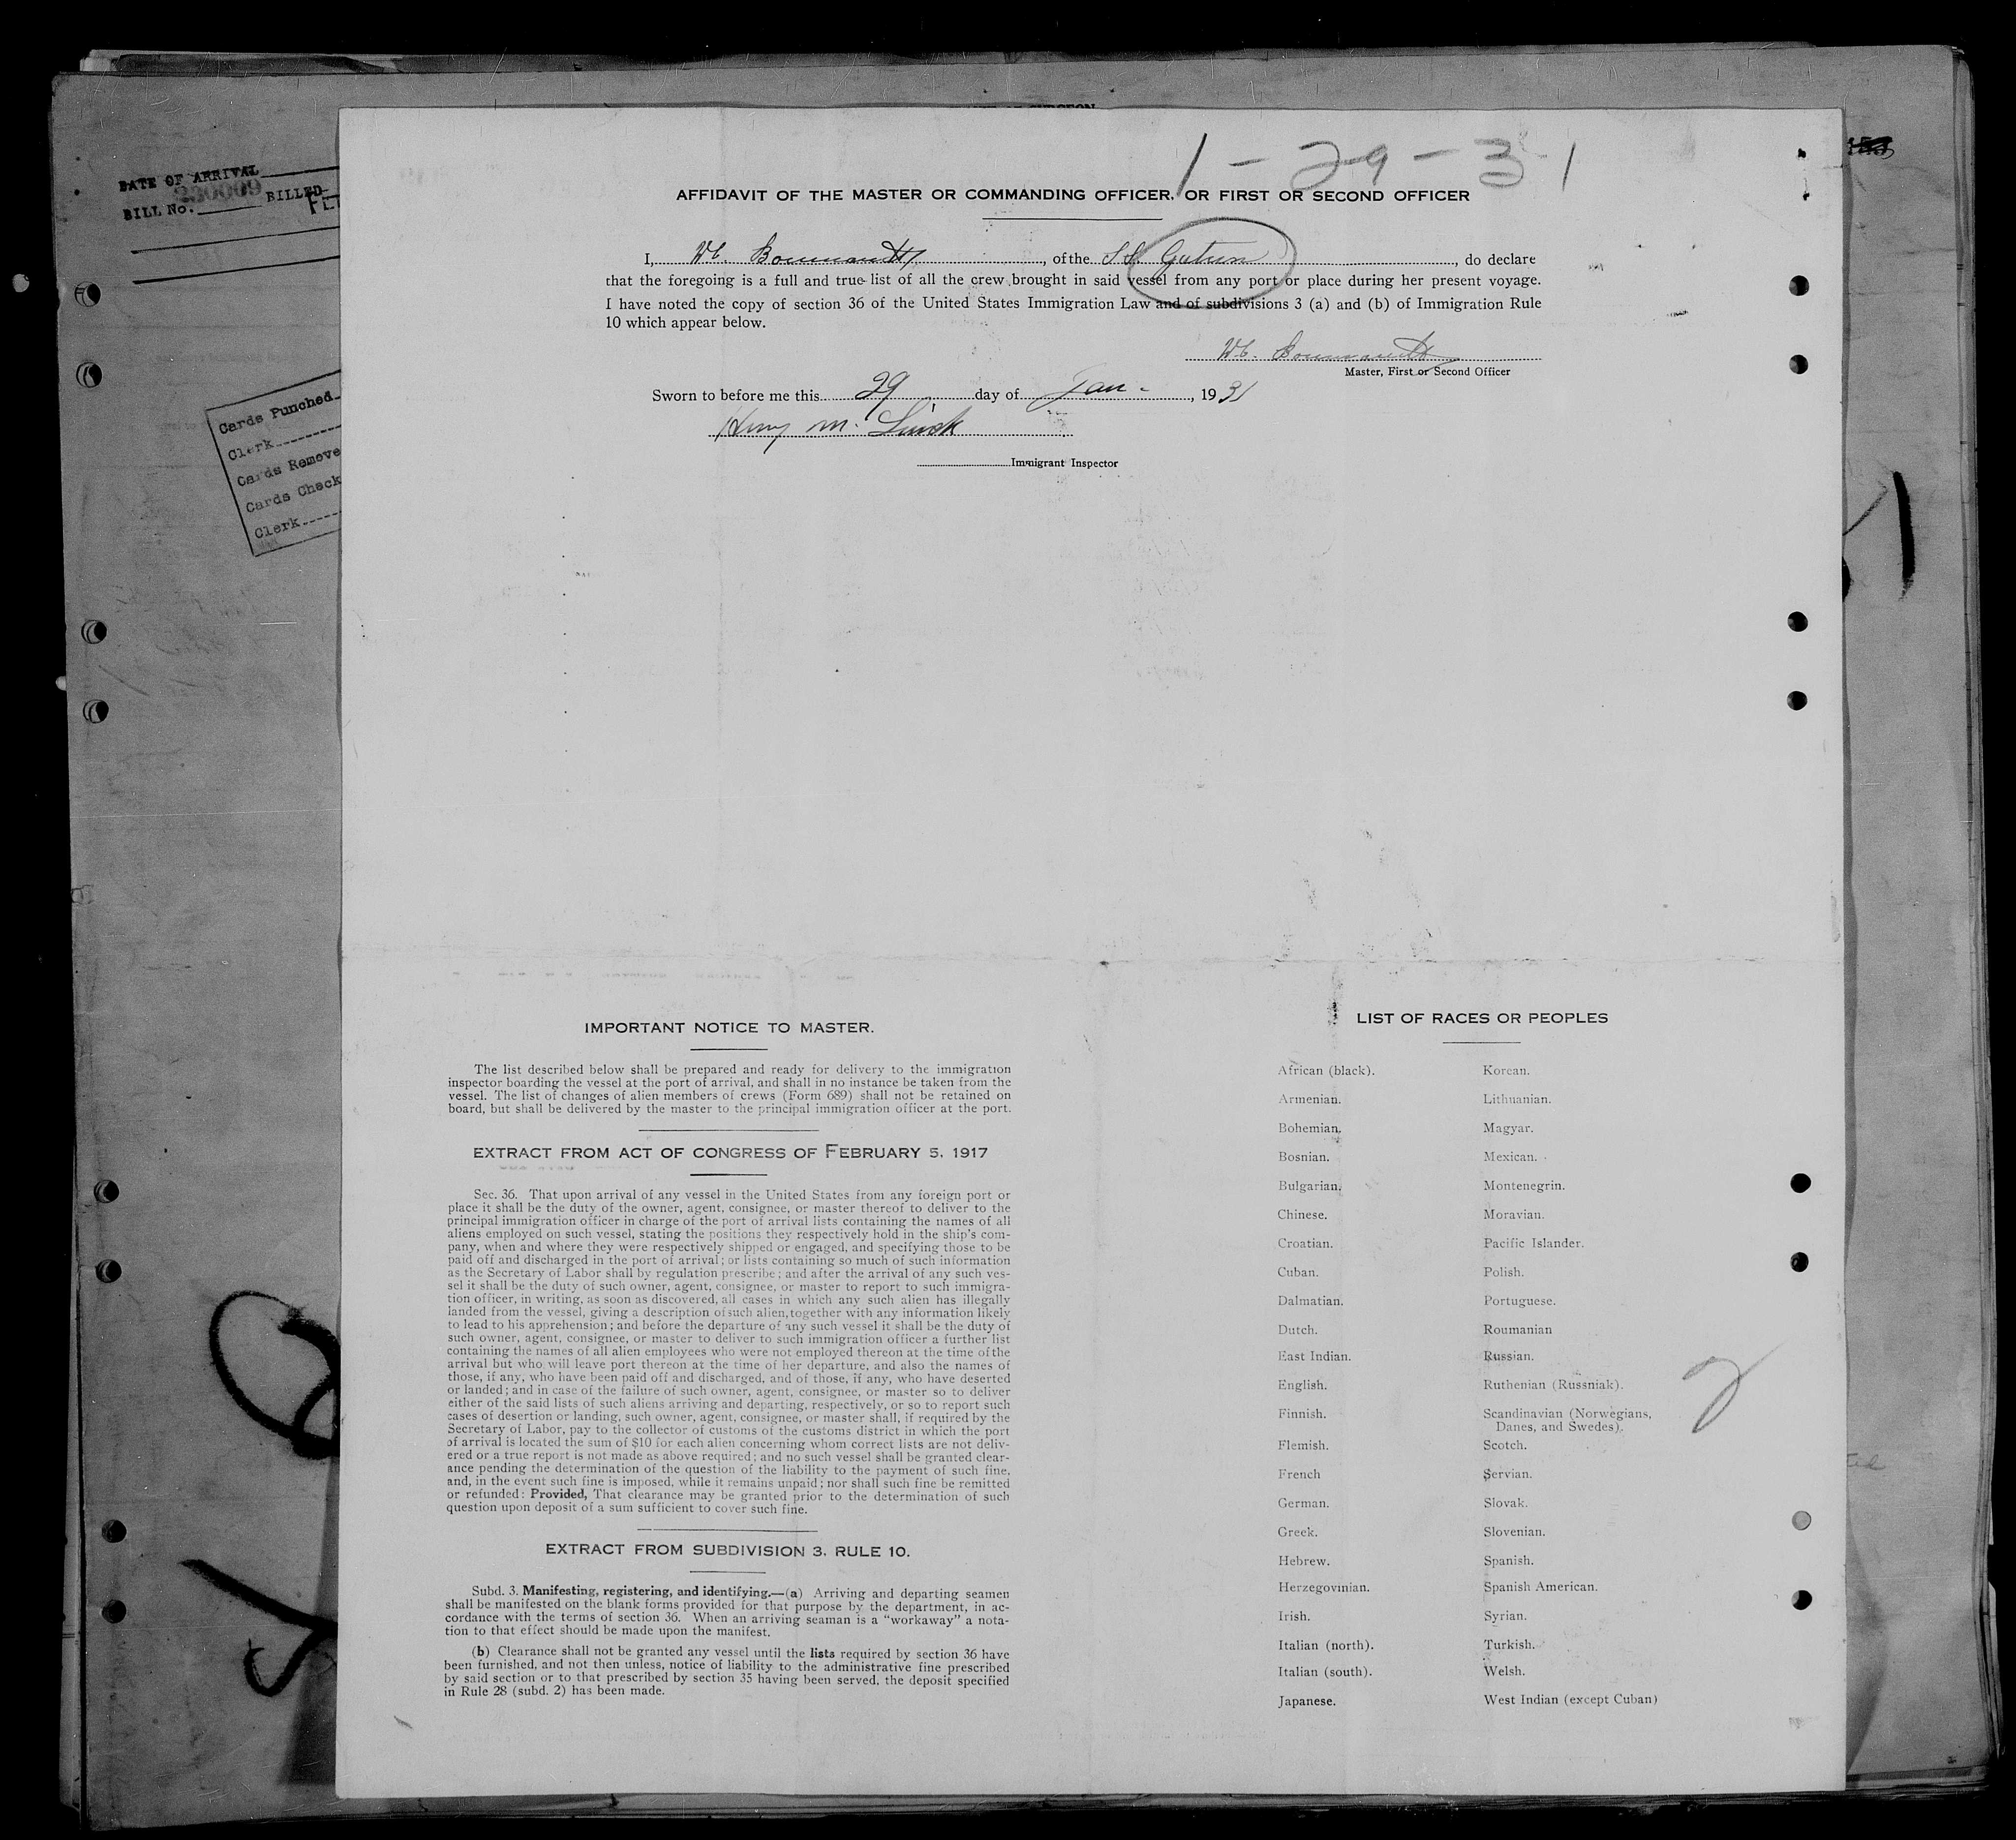 1-29-31
AFFIDAVIT OF THE MASTER OR COMMANDING OFFICER, OR FIRST OR SECOND OFFICER
I, , of the S.S. Gatun , do declare
that the foregoing is a full and true list of all the crew brought in said vessel from any port or place during her present voyage.
I have noted the copy of section 36 of the United States Immigration Law and of subdivisions 3 (a) and (b) of Immigration Rule
10 which appear below.
Master, First or Second Officer
Sworn to before me this 29 day of Jan - , 1931
Henry M.
Immigrant Inspector
DATE OF ARRIVAL
BILL No. 230009 BILLED
Cards Punched
Clerk
Cards Remove
Cards Check
Clerk
IMPORTANT NOTICE TO MASTER.
The list described below shall be prepared and ready for delivery to the immigration
inspector boarding the vessel at the port of arrival, and shall in no instance be taken from the
vessel. The list of changes of alien members of crews (Form 689) shall not be retained on
board, but shall be delivered by the master to the principal immigration officer at the port.
EXTRACT FROM ACT OF CONGRESS OF FEBRUARY 5, 1917
Sec. 36. That upon arrival of any vessel in the United States from any foreign port or
place it shall be the duty of the owner, agent, consignee, or master thereof to deliver to the
principal immigration officer in charge of the port of arrival lists containing the names of all
aliens employed on such vessel, stating the positions they respectively hold in the ship's com-
pany, when and where they were respectively shipped or engaged, and specifying those to be
paid off and discharged in the port of arrival; or lists containing so much of such information
as the Secretary of Labor shall by regulation prescribe; and after the arrival of any such ves-
sel it shall be the duty of such owner, agent, consignee, or master to report to such immigra-
tion officer, in writing, as soon as discovered, all cases in which any such alien has illegally
landed from the vessel, giving a description of such alien, together with any information likely
to lead to his apprehension; and before the departure of any such vessel it shall be the duty of
such owner, agent, consignee, or master to deliver to such immigration officer a further list
containing the names of all alien employees who were not employed thereon at the time of the
arrival but who will leave port thereon at the time of her departure, and also the names of
those, if any, who have been paid off and discharged, and of those, if any, who have deserted
or landed; and in case of the failure of such owner, agent, consignee, or master so to deliver
either of the said lists of such aliens arriving and departing, respectively, or so to report such
cases of desertion or landing, such owner, agent, consignee, or master shall, if required by the
Secretary of Labor, pay to the collector of customs of the customs district in which the port
of arrival is located the sum of $10 for each alien concerning whom correct lists are not deliv-
ered or a true report is not made as above required; and no such vessel shall be granted clear-
ance pending the determination of the question of the liability to the payment of such fine,
and, in the event such fine is imposed, while it remains unpaid; nor shall such fine be remitted
or refunded: Provided, That clearance may be granted prior to the determination of such
question upon deposit of a sum sufficient to cover such fine.
EXTRACT FROM SUBDIVISION 3, RULE 10.
Subd. 3. Manifesting, registering, and identifying.—(a) Arriving and departing seamen
shall be manifested on the blank forms provided for that purpose by the department, in ac-
cordance with the terms of section 36. When an arriving seaman is a "workaway" a nota-
tion to that effect should be made upon the manifest.
(b) Clearance shall not be granted any vessel until the lists required by section 36 have
been furnished, and not then unless, notice of liability to the administrative fine prescribed
by said section or to that prescribed by section 35 having been served, the deposit specified
in Rule 28 (subd. 2) has been made.
LIST OF RACES OR PEOPLES
African (black). Korean.
Armenian. Lithuanian.
Bohemian. Magyar.
Bosnian. Mexican.
Bulgarian. Montenegrin.
Chinese. Moravian.
Croatian. Pacific Islander.
Cuban. Polish.
Dalmatian. Portuguese.
Dutch. Roumanian
East Indian. Russian.
English. Ruthenian (Russniak).
Finnish. Scandinavian (Norwegians,
Danes, and Swedes).
Flemish. Scotch.
French Servian.
German. Slovak.
Greek. Slovenian.
Hebrew. Spanish.
Herzegovinian. Spanish American.
Irish. Syrian.
Italian (north). Turkish.
Italian (south). Welsh.
Japanese. West Indian (except Cuban)
2